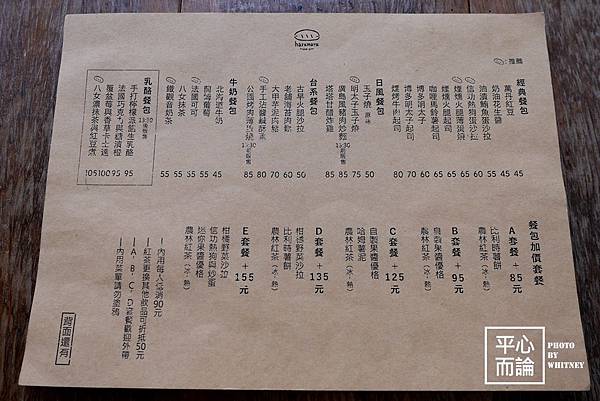 harumaru
：推薦
經典餐包
萬丹紅豆 45
奶油花生醬 45
油漬鮪魚蛋沙拉 55
信功熱狗蛋沙拉 60
煙燻火腿薄蛋燒 65
煙燻火腿起司 65
咖哩馬鈴薯起司 65
博多明太子 60
博多明太子起司 70
燻烤牛肉起司 80
日風餐包
玉子燒 原味 50
明太子玉子燒 75
廣島風豬肉炒麵
塔塔甘醋炸雞 85
台系餐包
古早火腿沙拉 50
老舖海苔肉鬆 60
大甲芋泥肉鬆 50
手工沾醬鹹酥 70
公園烤肉 80
牛奶餐包
北海道牛奶 45
蘭姆葡萄 55
法國可可 55
八女抹茶 55
鐵觀音奶茶 55
乳酪餐包
手打檸檬派餡生乳酪 95
法國巧克力與糖漬橙 95
覆盆莓與香草卡士達 100
八女濃抹茶與紅豆煮 105
餐包加價套餐
A 套餐 + 85元
比利時薯餅
農林紅茶（冰、熱）
B 套餐 + 95元
自製果醬優格
農林紅茶（冰、熱）
C 套餐 + 125元
哈姆薯泥
自製果醬優格
農林紅茶（冰、熱）
D 套餐 + 135元
柑橘野菜沙拉
比利時薯餅
農林紅茶（冰、熱）
E 套餐 + 155元
柑橘野菜沙拉
信功熱狗與炒蛋
迷你果醬優格
農林紅茶（冰、熱）
—內用每人低消90元
—紅茶更換其他飲品可折抵50元
—A、B、C、D套餐歡迎外帶
—內用菜單請勿塗鴉
背面還有
平心而論
PHOTO
BY
WHITNEY